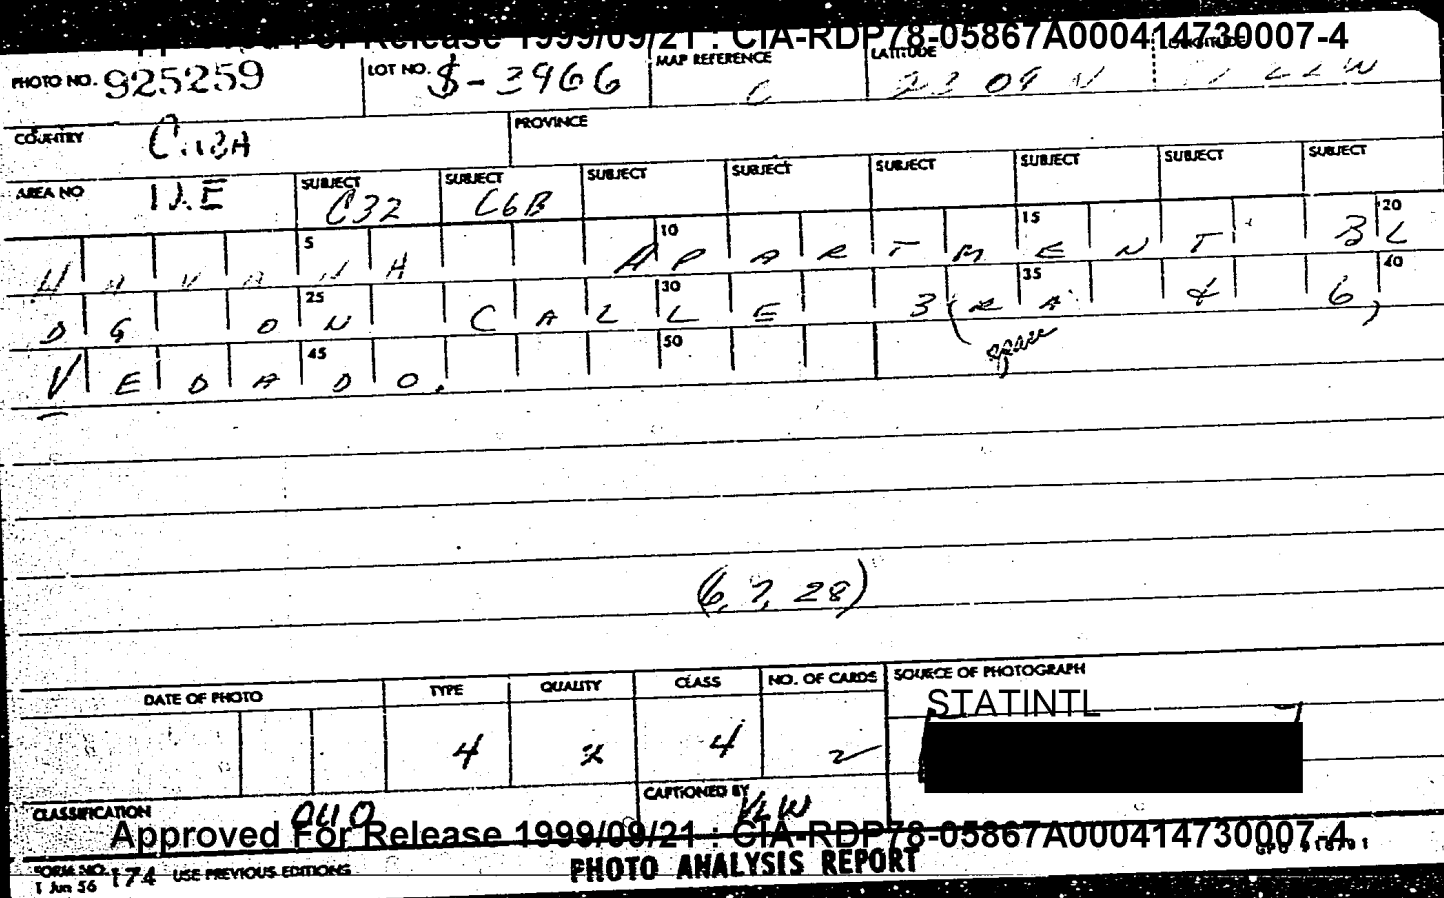 Approved For Release 1999/09/21 : CIA-RDP78-05867A000414730007-4
PHOTO NO. 925259 LOT NO. S-3966 MAP REFERENCE LATITUDE 23 09 N LONGITUDE
COUNTRY CUBA PROVINCE
AREA NO SUBJECT C32 SUBJECT C6B SUBJECT SUBJECT SUBJECT SUBJECT SUBJECT SUBJECT
5 10 15 20
HAVANA APARTMENT BL
25 30 35 40
DG ON CALLE 3(RA & 6)
space
45 50
VEDADO.
(6, 7, 28)
DATE OF PHOTO TYPE QUALITY CLASS NO. OF CARDS SOURCE OF PHOTOGRAPH
STATINTL
4 4 2
CLASSIFICATION OUO CAPTIONED BY KLW
Approved For Release 1999/09/21 : CIA-RDP78-05867A000414730007-4
FORM NO. 174 USE PREVIOUS EDITIONS PHOTO ANALYSIS REPORT
1 Jun 56